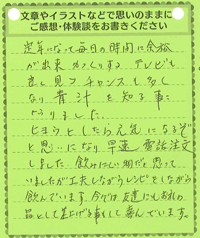 文章やイラストなどで思いのままに
ご感想・体験談をお書きください
定年になって毎日の時間に余裕
が出来
テレビも
良く見るチャンスも多く
なり青汁を知る事に
なりました。
ひょっとしたら元気になるぞ
と思いになり早速電話注文
しました。飲みにくい物だと思って
いましたが工夫しながらレシピをしながら
飲んでいます。今では友達にもお礼の
品として差上げる事もして喜んでいます。